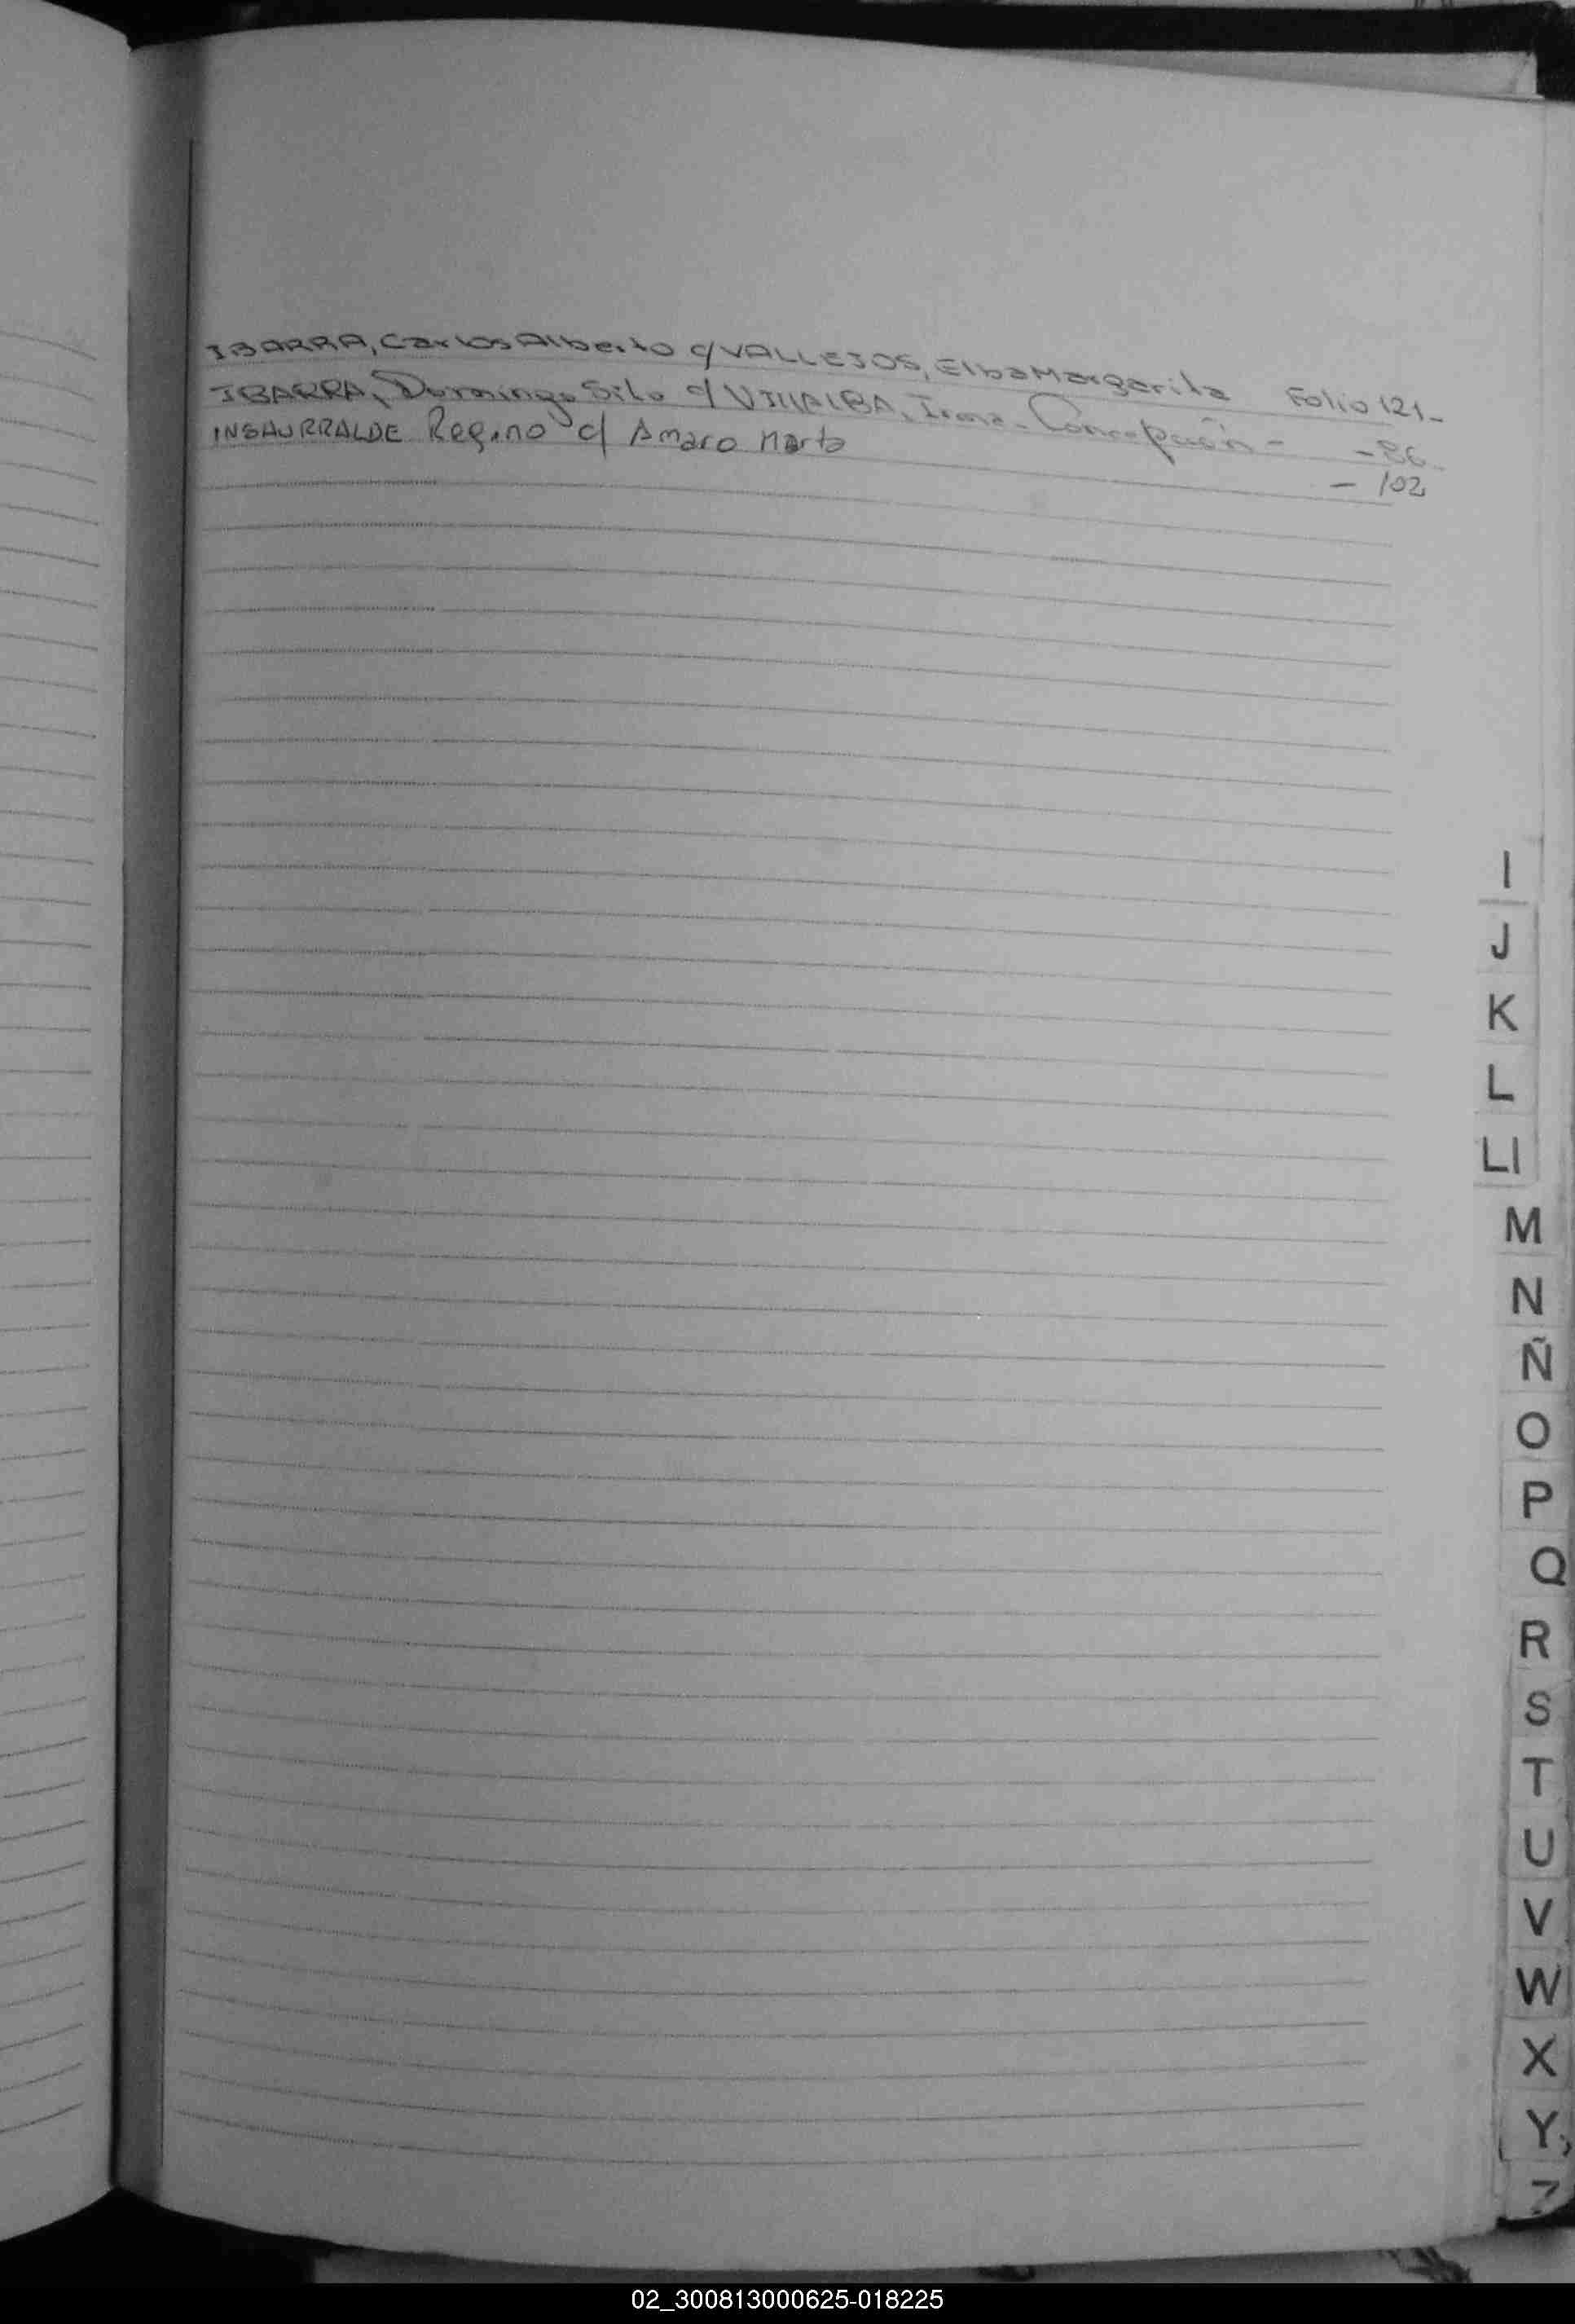 IBARRA, Carlos Alberto c/ VALLEJOS, Elba Margarita Folio 121-
IBARRA, Domingo Silo c/ VILLALBA, Irma Concepción - - 86-
INSAURRALDE Regino c/ Amaro Marta - 102
I
J
K
L
Ll
M
N
Ñ
O
P
Q
R
S
T
U
V
W
X
Y,
Z
02_300813000625-018225